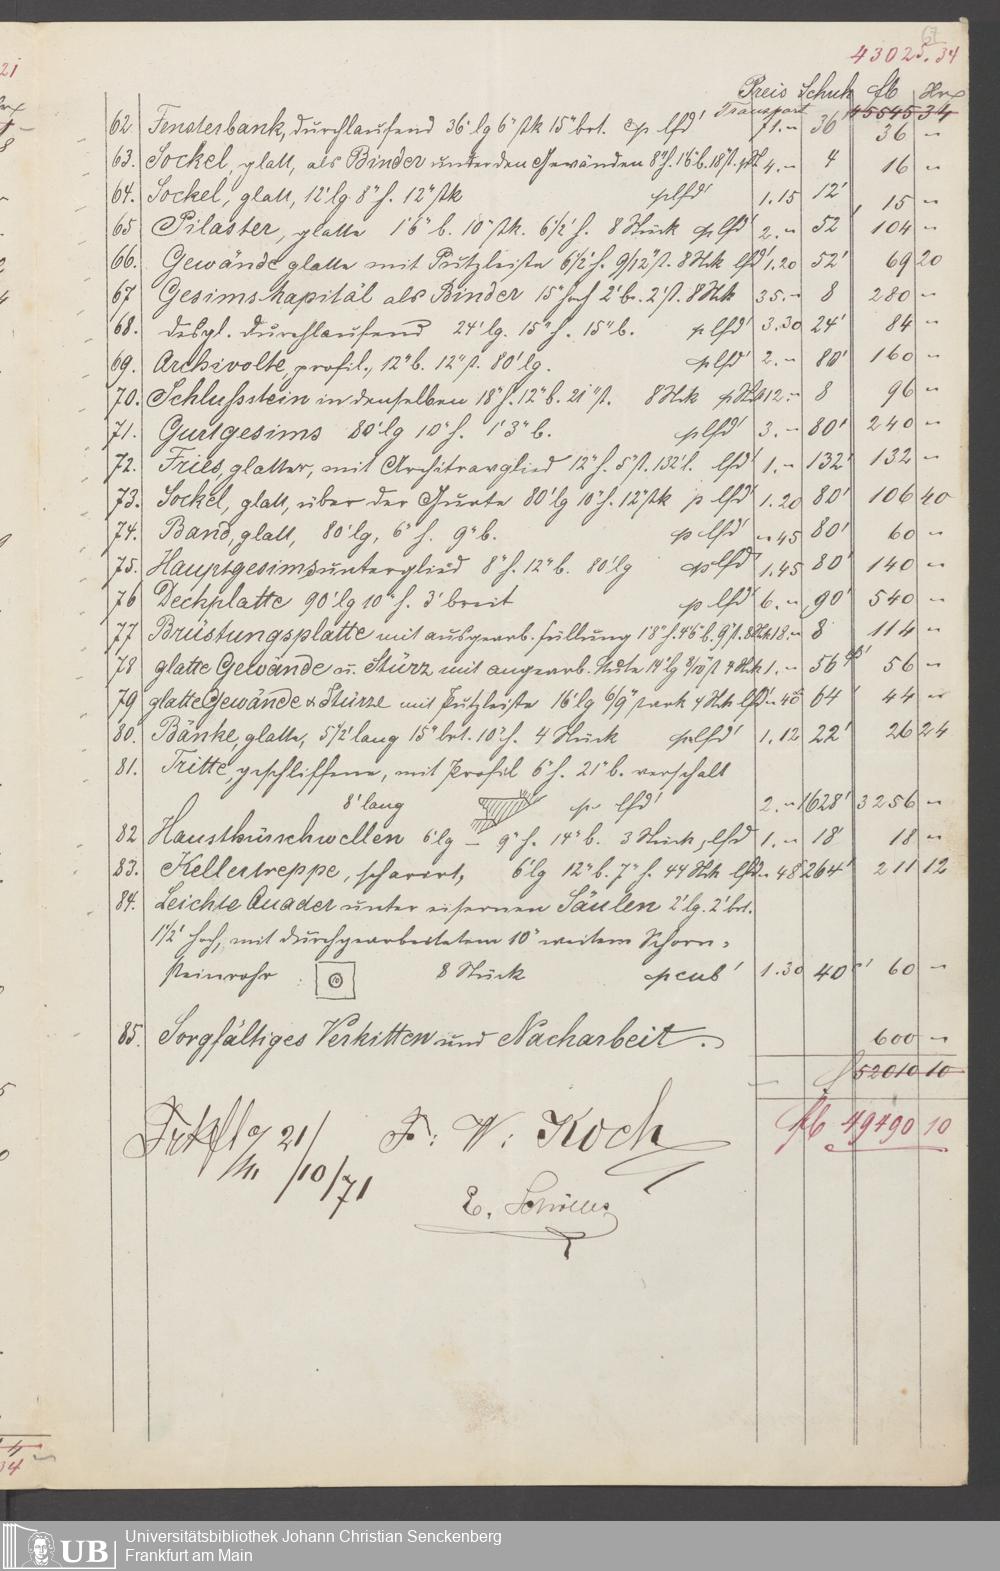 67
43025.34
Preis Schuh fl Xrx
Transport 45545 34
62. Fensterbank, durchlaufend 36' lg 6" stk 15" brt. p lfd' f 1.- 36' 36 -
63. Sockel, glatt, als Binder unter den Gewänden 8"h. 1'6"b. 18"st. p Stk 4.- 4 16 -
64. Sockel, glatt, 12' lg 8" h. 12" stk p lfd' 1.15 12' 15 -
65 Pilaster, glatte 1'6" b. 10" stk. 6½' h. 8 Stück p lfd' 2.- 52' 104 -
66. Gewände glatte mit Putzleiste 6½' h. 9/12" st. 8 Stk lfd' 1.20 52' 69 20
67 Gesimskapitäl als Binder 15" hoch 2' br. 2' st. 8 Stk 35.- 8 280 -
68. desgl. durchlaufend 24' lg. 15" h. 15" b. p lfd' 3.30 24' 84 -
69. Archivolte, profil., 12" b. 12" st. 80' lg. p lfd' 2.- 80' 160 -
70. Schlußstein in denselben 18" h. 12" b. 21" st. 8 Stk p Stk 12.- 8 96 -
71. Gurtgesims 80' lg 10" h. 1' 3" b. p lfd' 3.- 80' 240 -
72. Fries, glatter, mit Architravglied 12" h. 5" st. 132' l. lfd' 1.- 132' 132 -
73. Sockel, glatt, über der Gurte 80' lg 10" h. 12" stk p lfd' 1.20 80' 106 40
74. Band, glatt, 80' lg, 6" h. 9" b. p lfd' - 45 80' 60 -
75. Hauptgesimsunterglied 8" h. 12" b. 80' lg p lfd' 1.45 80' 140 -
76 Deckplatte 90' lg 10" h. 3' breit p lfd' 6.- 90' 540 -
77 Brüstungsplatte mit ausgearb. Füllung 1'8" h. 4'6" b. 9" st. 8 Stk 18.- 8 114 -
78 glatte Gewände u. Stürz mit angearb. Nute 14' lg 8/10" st 4 Stk 1.- 56' 56 -
79 glatte Gewände & Stürze mit Putzleiste 16' lg 6/9" stark 4 Stk lfd' - 40 64' 44 -
80. Bänke, glatte, 5½' lang 15" brt. 10" h. 4 Stück p lfd' 1.12 22' 26 24
81. Tritte, geschliffene, mit Profil 6" h. 21" b. verschalt
8' lang p lfd' 2.- 1628' 3256 -
82 Hausthürschwellen 6' lg - 9" h. 14" b. 3 Stück, lfd 1.- 18' 18 -
83. Kellertreppe, scharirt, 6' lg 12" b. 7" h. 44 Stk lfd - 48 264' 211 12
84. Leichte Quader unter eisernen Säulen 2' lg. 2' brt.
1½' hoch, mit durchgearbeitetem 10" weitem Schorn-
steinrohr 8 Stück p cub' 1.30 40 c' 60 -
85. Sorgfältiges Verkitten und Nacharbeit. 600 -
f 52010 10
fl 49490 10
Frkft a/M 21/10/71
F: W: Koch